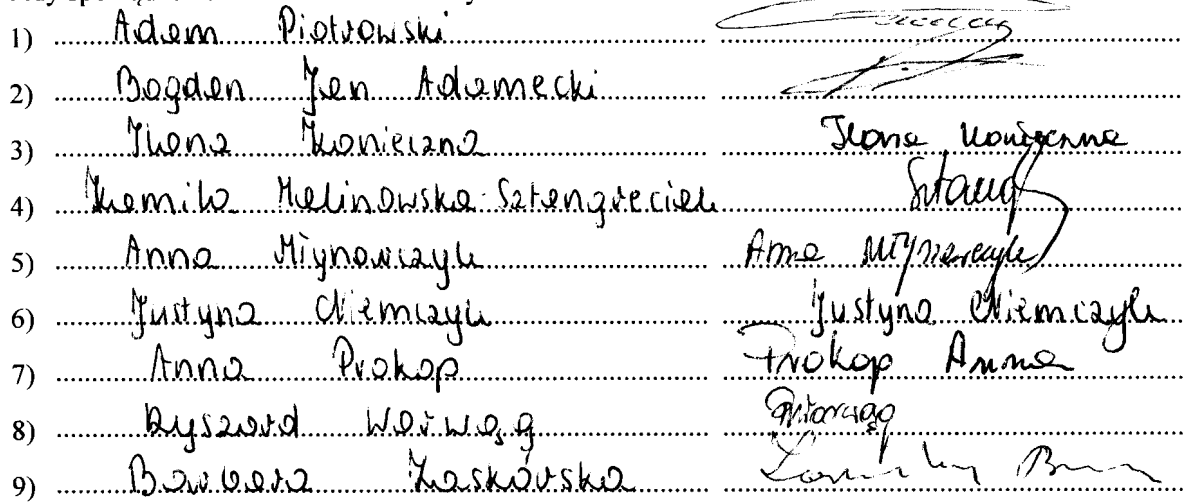 1) Adam Piotrowski
2) Bogdan Jan Adamecki
3) Ilona Konieczna Ilona Konieczna
4) Kamila Malinowska-Sztengreciak
5) Anna Młynarczyk Anna Młynarczyk
6) Justyna Niemczyk Justyna Niemczyk
7) Anna Prokop Prokop Anna
8) Ryszard Worwąg RWorwąg
9) Barbara Laskowska